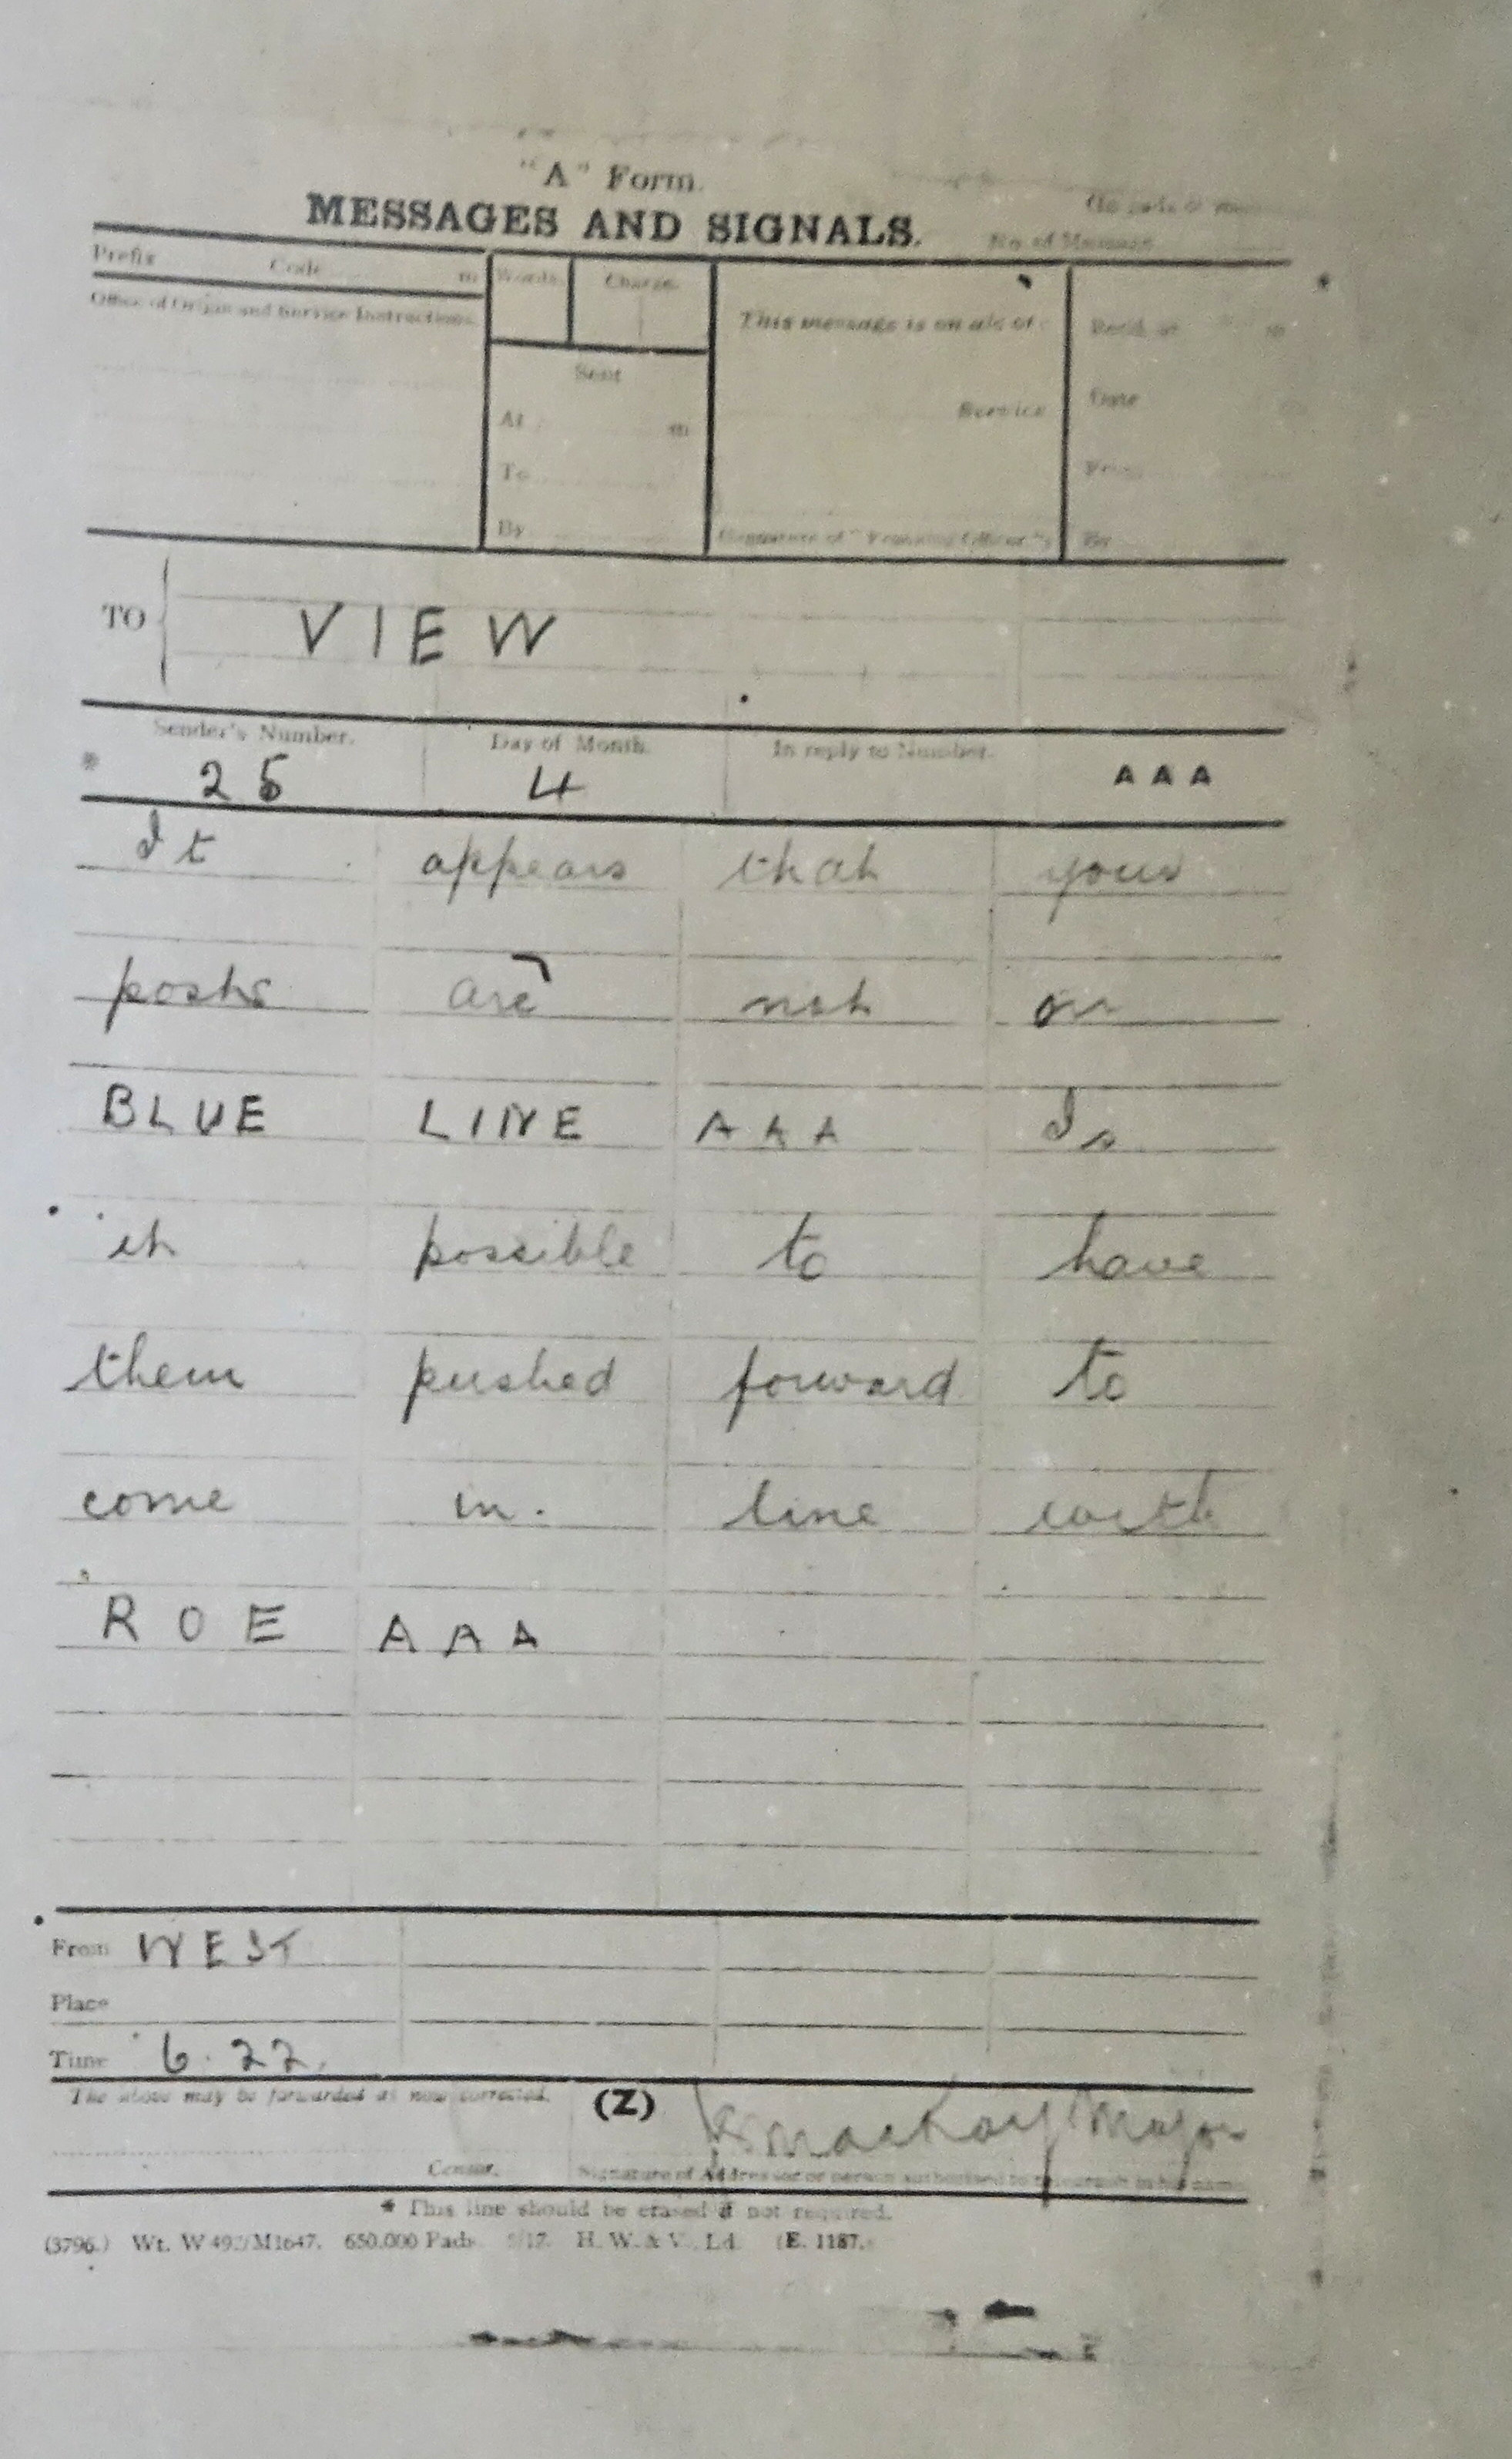 "A" Form.
MESSAGES AND SIGNALS.
No. of Message
Prefix Code m Words Charge
Office of Origin and Service Instructions.
This message is on a/c of:
Recd. at m
Sent
At m
Service
Date
To
From
By
Signature of "Franking Officer."
By
TO VIEW
Sender's Number. Day of Month. In reply to Number.
* 25 4 AAA
It appears that your
posts are not on
BLUE LINE AAA Is
it possible to have
them pushed forward to
come in. line with
ROE AAA
From WEST
Place
Time 6.22.
The above may be forwarded as now corrected. (Z) Mackay Major
Censor. Signature of Addressor or person authorised to telegraph in his name
* This line should be erased if not required.
(3796.) Wt. W 492/M1647. 650,000 Pads. 5/17. H. W. & V., Ld. (E. 1187.)